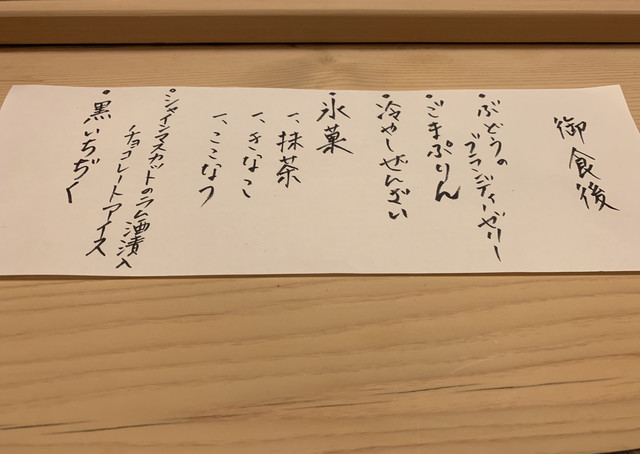 御食後
・ぶどうの
ブランディーゼリー
・ごまぷりん
・冷やしぜんざい
・氷菓
一、抹茶
一、きなこ
一、ここなつ
・シャインマスカットのラム酒漬入
チョコレートアイス
・黒いちぢく